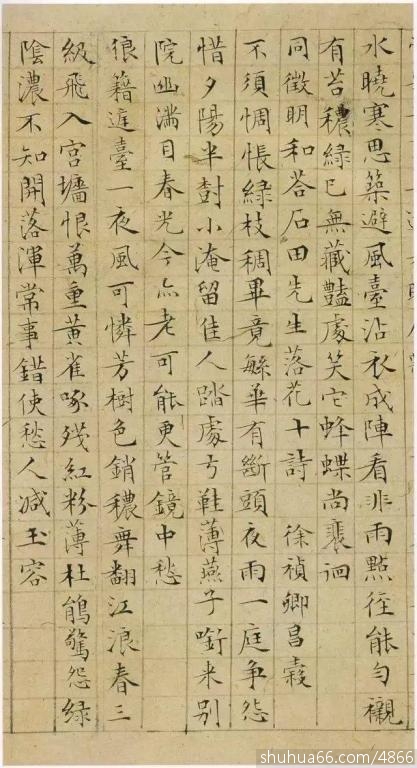 水曉寒思築避風臺沾衣成陣看非雨點徑能勻襯
有苔穠綠已無藏豔處笑它蜂蝶尚裴徊
同徵明和荅石田先生落花十詩 徐禎卿昌穀
不須惆悵綠枝稠畢竟緐華有斷頭夜雨一庭爭怨
惜夕陽半樹小淹留佳人踏處弓鞋薄燕子銜来別
院幽滿目春光今亦老可能更管鏡中愁
狼籍庭臺一夜風可憐芳樹色銷穠舞翻江浪春三
級飛入宮墻恨萬重黃雀啄殘紅粉薄杜鵑驚怨綠
陰濃不知開落渾常事錯使愁人減玉容
shuhua66.com/4866